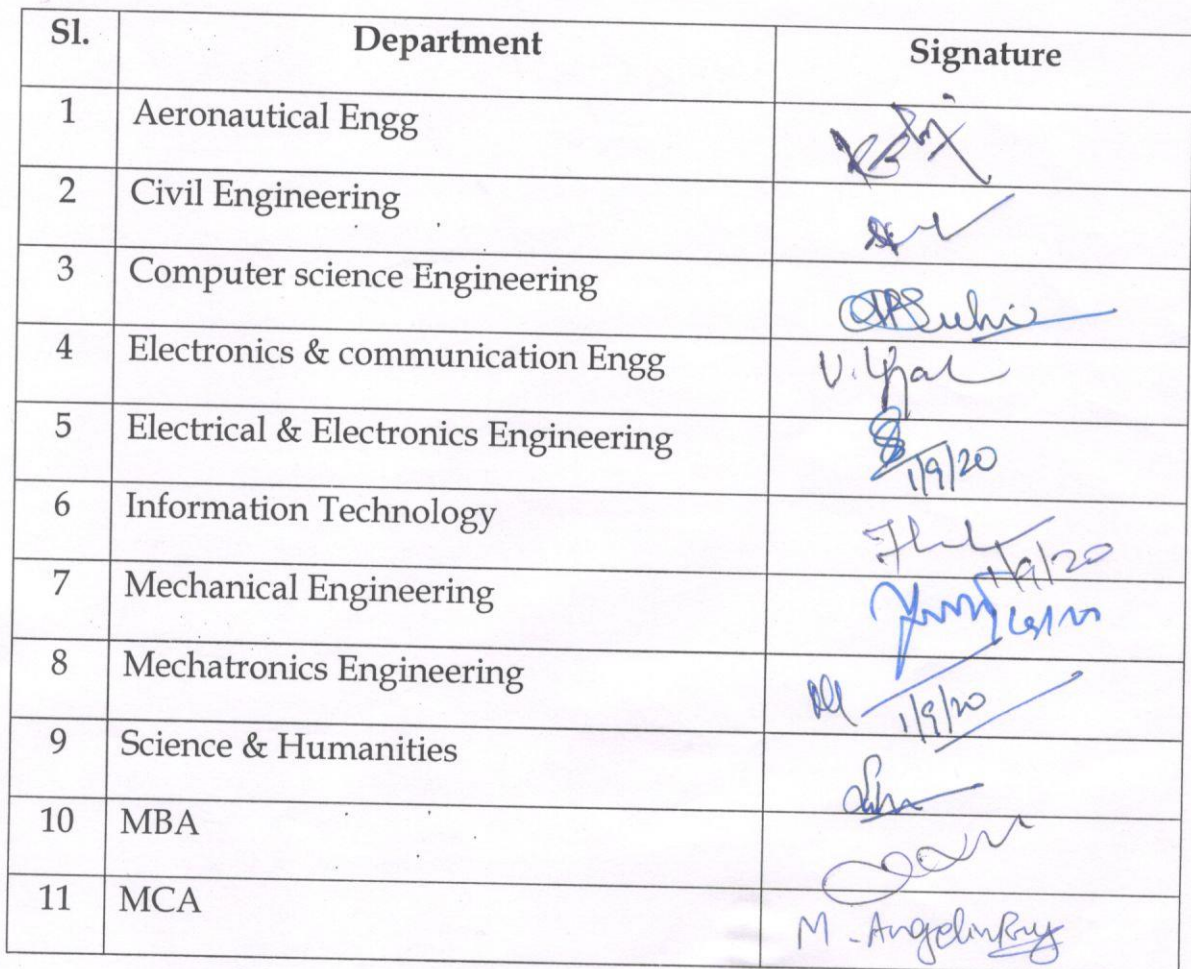 Sl. Department Signature
1 Aeronautical Engg
2 Civil Engineering
3 Computer science Engineering
4 Electronics & communication Engg
5 Electrical & Electronics Engineering
1/9/20
6 Information Technology
1/9/20
7 Mechanical Engineering
8 Mechatronics Engineering
1/9/20
9 Science & Humanities
10 MBA
11 MCA M. Angelin